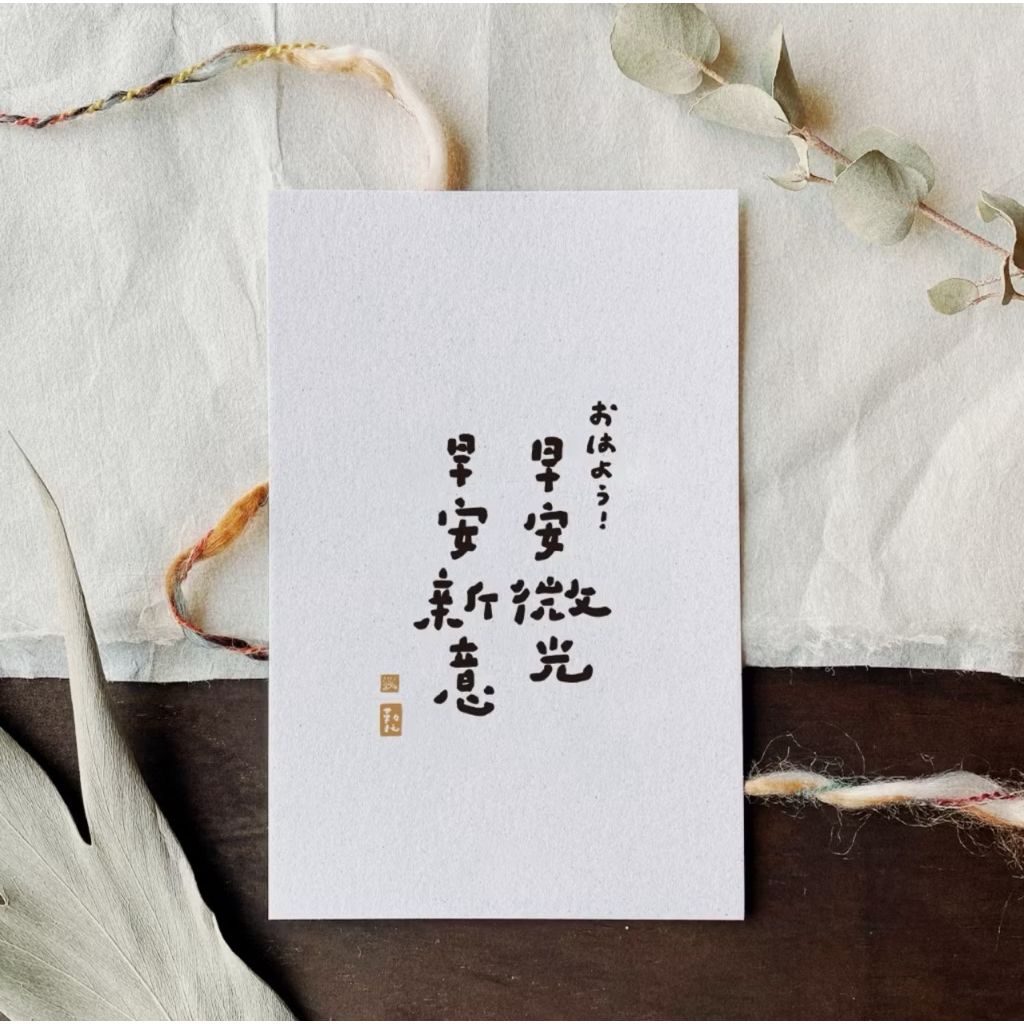 おはよう!
早安微光
早安新意